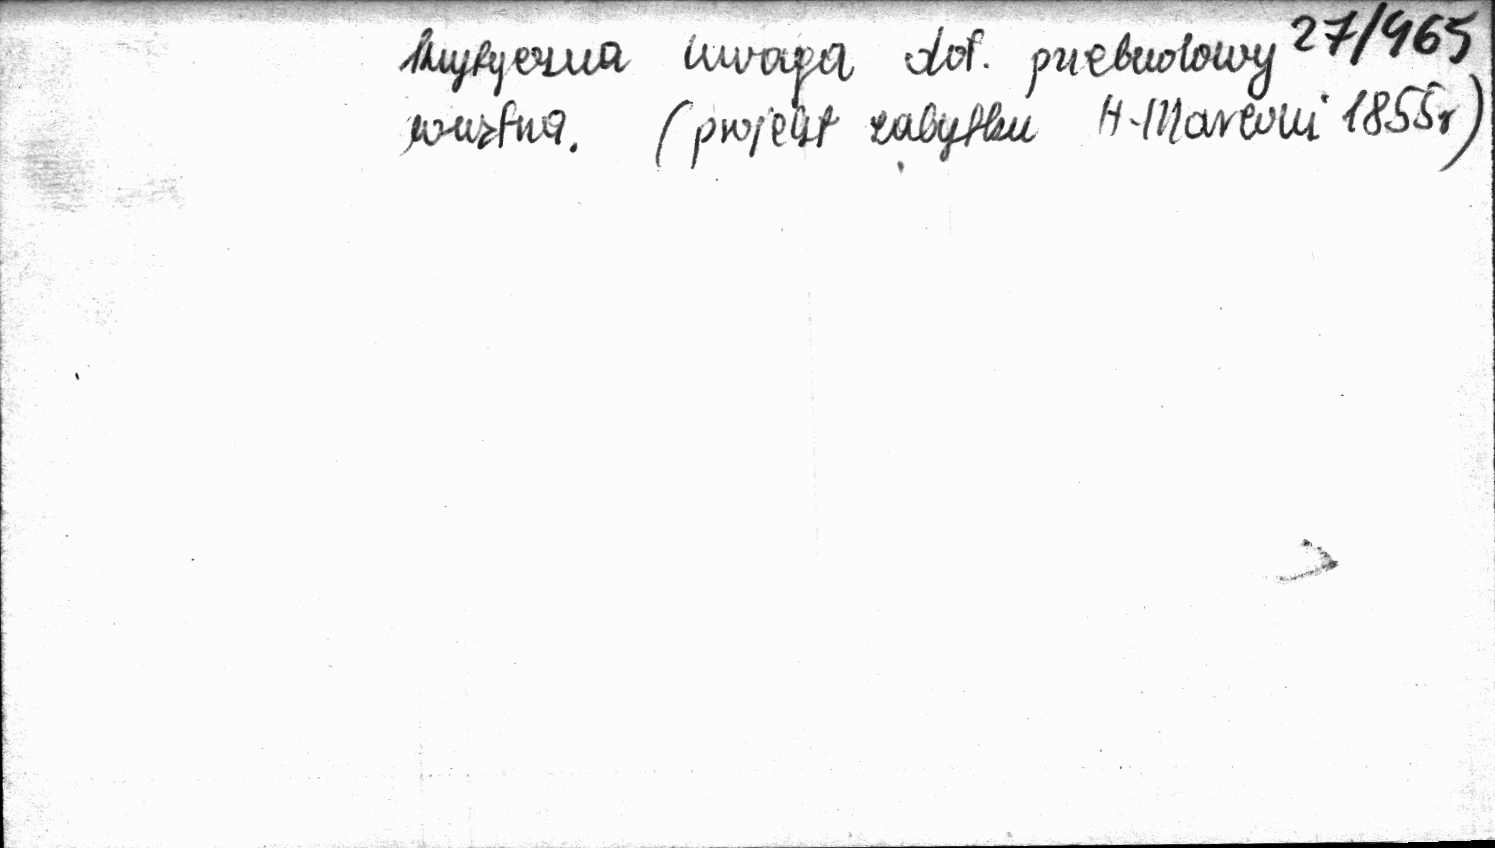 krytyczna uwaga dot. przebudowy 27/965
wnętrza. (projekt zabytku H. Marconi 1855r)